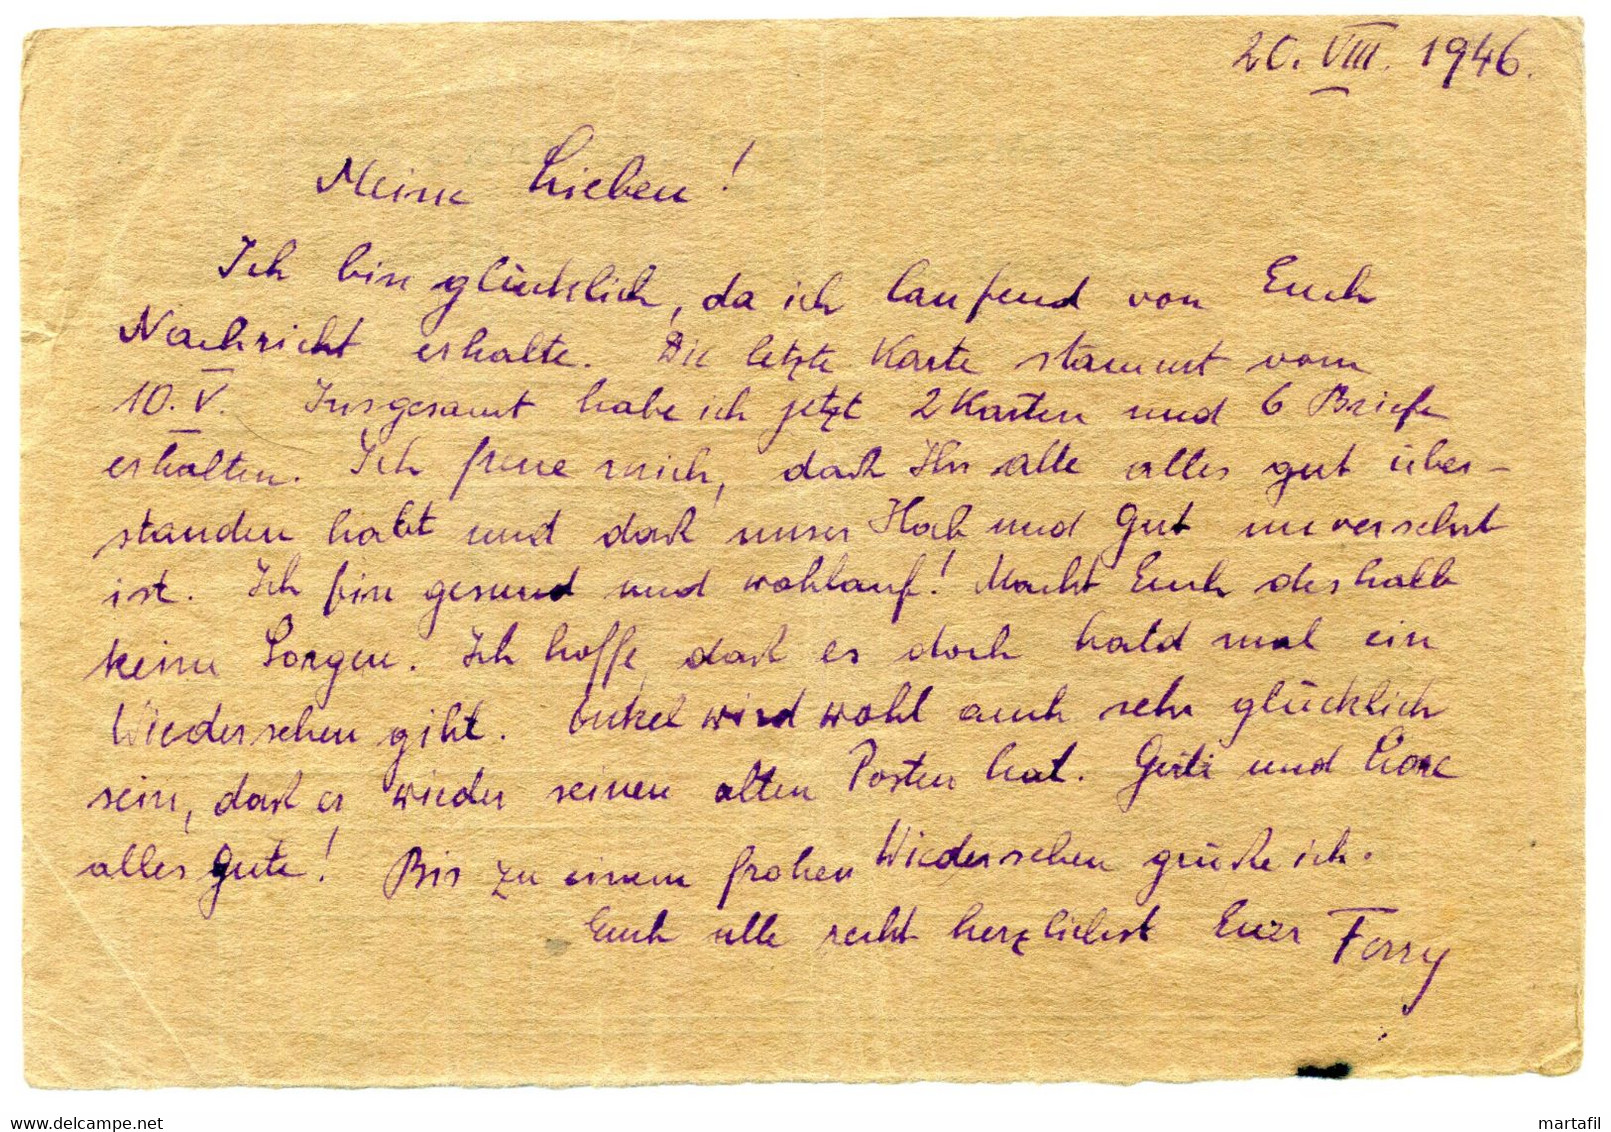 20. VIII. 1946.
Meine Lieben!
Ich bin glücklich, da ich laufend von Euch
Nachricht erhalte. Die letzte Karte stammt vom
10. V. Insgesamt habe ich jetzt 2 Karten und 6 Briefe
erhalten. Ich freue mich, daß Ihr alle alles gut über-
standen habt und daß unser Hab und Gut unversehrt
ist. Ich bin gesund und wohlauf! Macht Euch deshalb
keine Sorgen. Ich hoffe, daß es doch bald mal ein
Wiedersehen gibt. Onkel wird wohl auch sehr glücklich
sein, daß er wieder seinen alten Posten hat. und
alles Gute! Bis zu einem frohen Wiedersehen grüße ich
Euch alle recht herzlichst Euer Ferry
delcampe.net
martafil